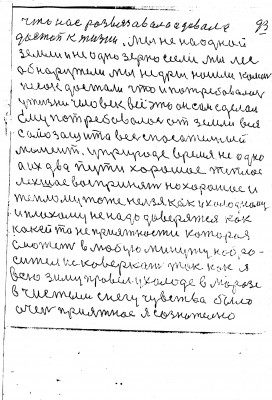 что нас развивавало и давало 93
достоп к жизни. Мы не на одной
земли и не одно зерно сеели мы лес
обнаружили мы недры нашли камен
песок достали что и потребовалось
у жизни человек всё это он сам сделал
Ему потребовалось от земли вся
самозащита весь спасательный
момент. У природе время не одно
а их два пути хорошое теплое
легшое воспринят но хорошое и
теплому тоже нельзя как и холодному
и плохому не надо доверятся как
какей то неприятности которая
сможет в любую минуту на
сител исковеркат так как я
всю зиму провел у холоде в морозе
в чистым снегу чувства было
очен приятное я сознателно